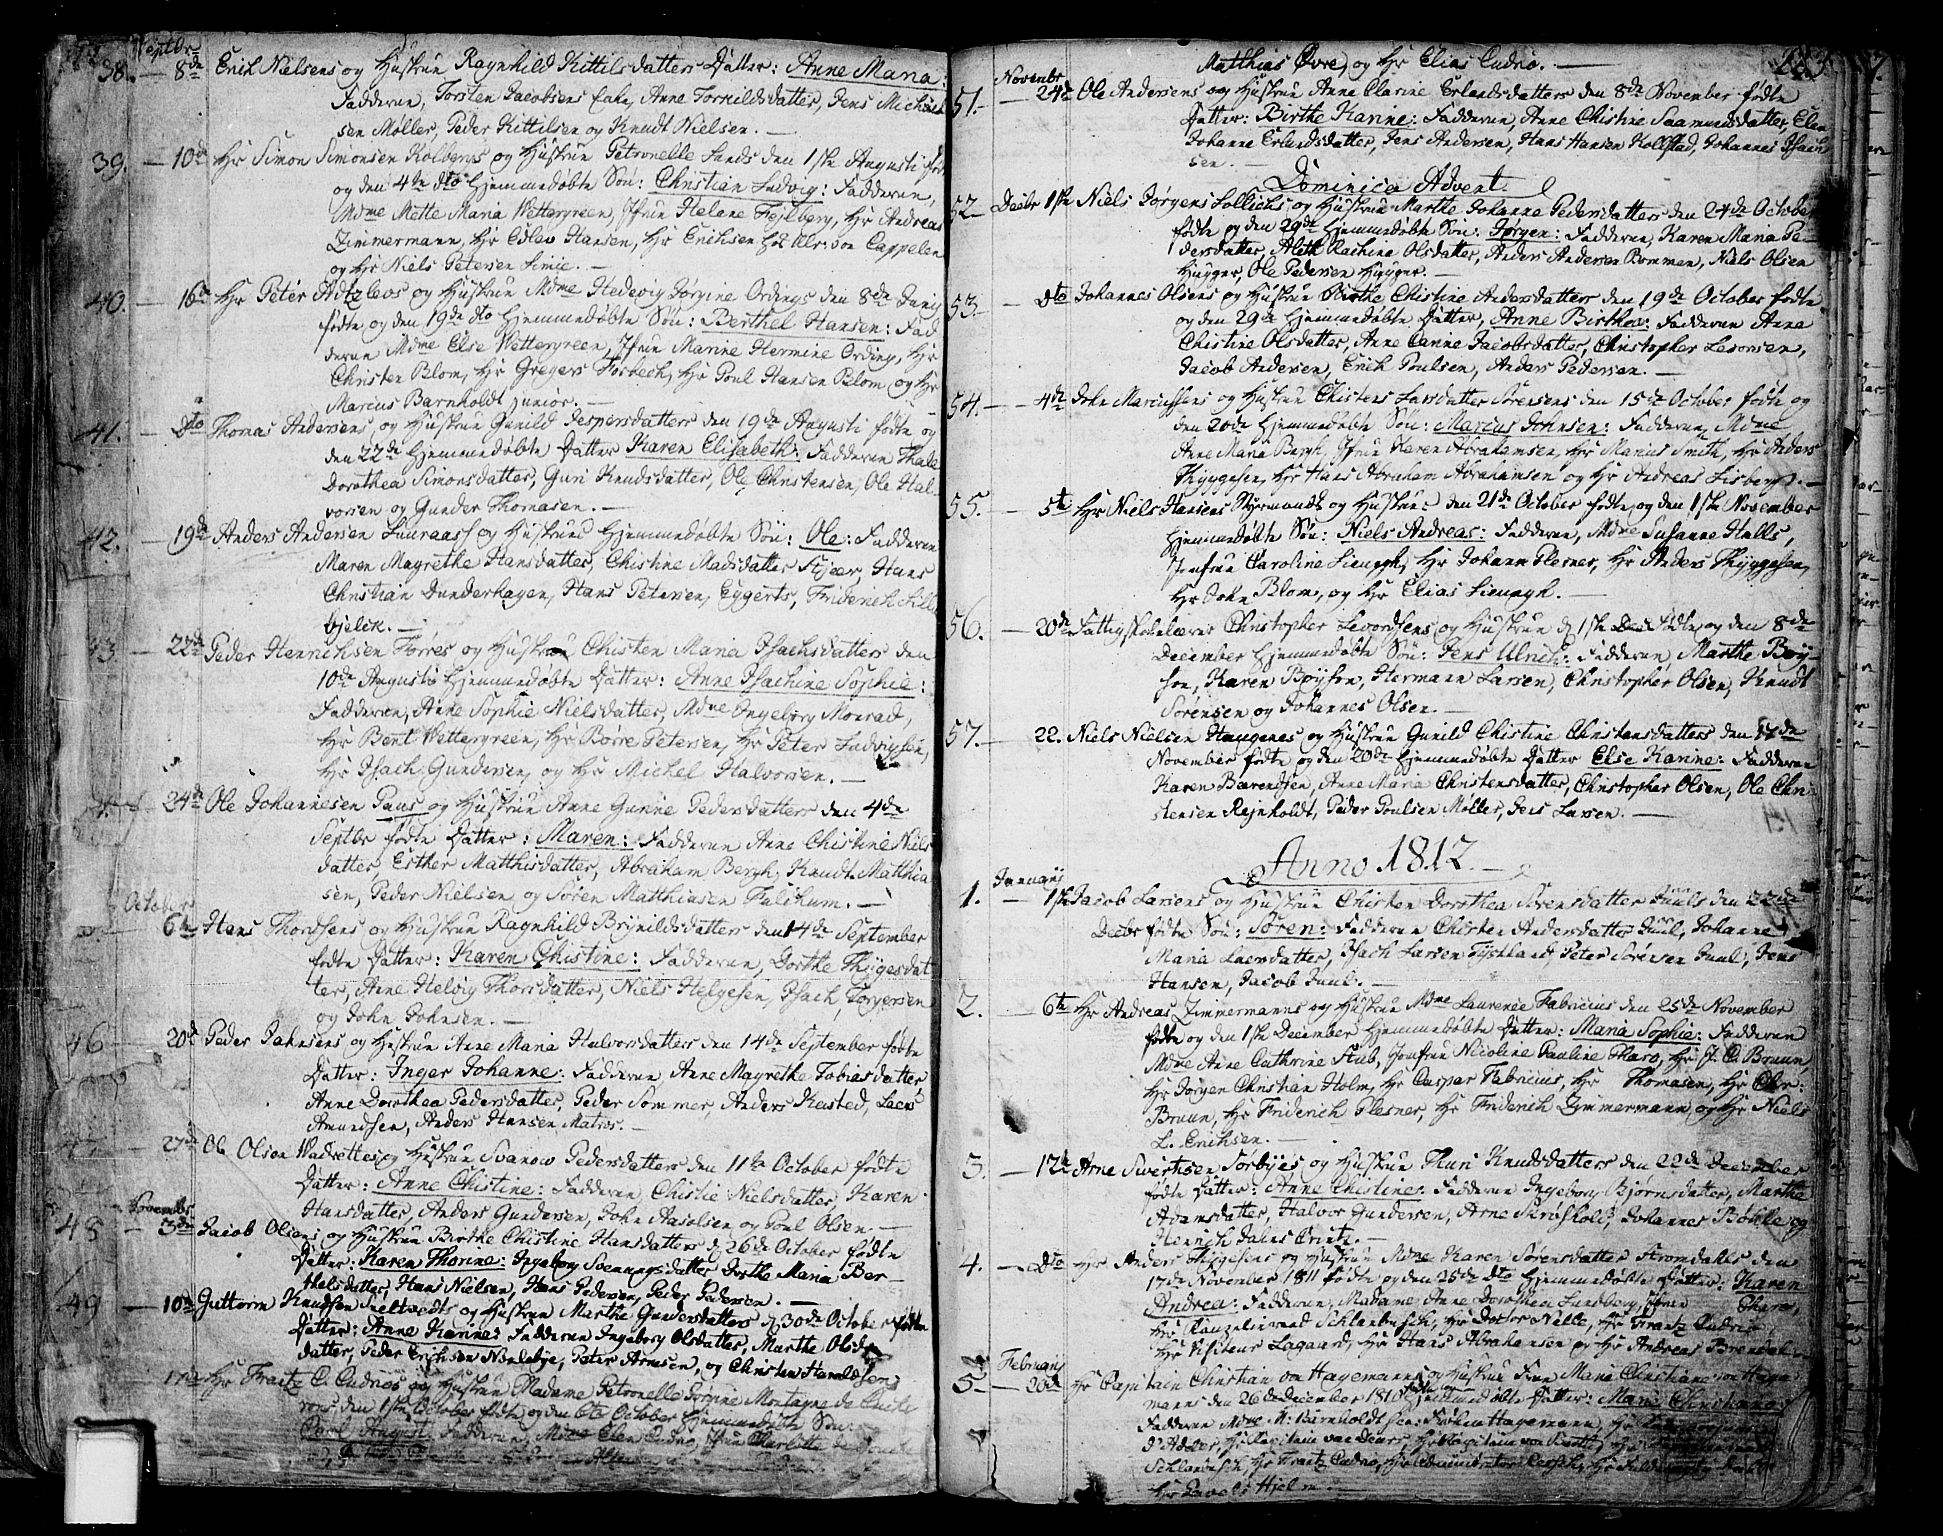 Septbr
38. — 8de Erik Nielsens og Hustrue Ragnhild Kittilsdatters Datter: Anne Maria:
Fadderne, Torsten Jacobsens Enke, Anne Tornildsdatter, Jens Michael-
sen Møller, Peder Kittilsen og Knudt Nielsen. —
39. — 10de Hr Simon Simonsen Kolbergs og Hustrue Petronelle Lunds den 1ste Augusti fød
og den 4de dto hjemmedøbte Søn: Christian Ludvig: Fadderne,
Mdme Mette Maria Wettergreen, Jfrue Helene Fejlberg, Hr Andreas
Zimmermann, Hr Edlev Hansen, Hr Erichsen hos von Cappelen
og Hr Niels Petersen Linie. —
40. — 16de Hr Peter Adtzlevs og Hustrue Mdme Hedevig Jørgine Ordings den 8de Junij
fødte, og den 19de dto hjemmedøbte Søn: Berthel Hansen: Fad
derne Mdme Else Wettergreen, Jfrue Marine Hermine Ording, Hr
Christen Blom, Hr Gregers Forbech, Hr Poul Hansen Blom og Hr
Marcus Barnholdt junior. —
41. — Dto Thomas Andersens og Hustrue Gunild Jespersdatters den 19de Augusti fødte og
den 22de hjemmedøbte Datter Karen Elisabeth: Fadderne Thale
Dorothea Simonsdatter, Guri Knudsdatter, Ole Christensen, Ole Hal-
vorsen og Gunder Thomasen. —
42. — 19de Anders Andersen Luuraass og Hustrues hjemmedøbte Søn: Ole: Fadderne
Maren Magrethe Hansdatter, Christine Madsdatter Kjær, Hans
Christian Dunderhagen, Hans Petersen, Eggerts, Friderich Lille
bjelck. —
43 — 22de Peder Henrichsen Torres og Hustrue Christen Maria Isachsdatters den
10de Augusti hjemmedøbte Datter: Anne Isachine Sophie:
Fadderne, Anne Sophie Nielsdatter, Mdme Ingeborg Monrad,
Hr Bent Wettergreen, Hr Børre Petersen, Hr Peter Ludvigsen,
Hr Isach Gundersen og Hr Michel Halvorsen. —
24de Ole Johannesen Paus og Hustrue Anne Gurine Pedersdatters den 4de
Septbr fødte Datter: Maren: Fadderne Anne Christine Niels
datter, Esther Matthisdatter, Abraham Bergh, Knudt Matthia
sen, Peder Nielsen og Søren Matthiasen Falkum. —
October
6te Hans Thordsens og Hustrue Ragnhild Brynildsdatters den 14de September
fødte Datter: Karen Christine: Fadderne, Dorthe Thygesdat
ter, Anne Helvig Thorsdatter, Niels Helgesen, Isach Torgersen
og John Johnsen. —
46 20de Peder Jahnsens og Hustrue Anne Maria Halvorsdatters den 14de September fødte
Datter: Inger Johanne: Fadderne Anne Magrethe Tobiasdatter
Anne Dorothea Pedersdatter, Peder Sommer, Anders Kested, Laers
Amundsen, Anders Hansen Matros. —
47. 27de Ole Olsen Wadrettes og Hustrue Svanow Pedersdatters den 11te October fødte
Datter: Anne Christine: Fadderne, Christie Nielsdatter, Karen
Hansdatter, Anders Gundersen, John Aasolsen og Poul Olsen. —
November
48 — 3de Jacob Olsens og Hustrue Birthe Christine Hansdatters d 26de October fødte
Datter: Karen Thorine: Ingeborg Svenungsdatter Dorthe Maria Ber-
thelsdatter, Hans Nielsen, Hans Pedersen, Peder Pedersen. —
49 — 10de Guttorm Knudsen Sneltvedts og Hustrue Marthe Gundersdatters d 30de October fødte
Datter: Anne Karine: Fadderne Ingeborg Olsdatter, Marthe Ols
datter, Peder Erichsen Nordebye, Peter Arnesen, og Christen Haraldsen
17de Hr Frantz C. Cudrios og Hustrue Madame Petronelle Jørgine Montagne de
rons den 1ste October fødte og den 6te October hjemmedøbte Søn:
Carl August: Fadderne, Mdme Elen Cudrio, Jfrue Charlotte de
283
Matthias Øvre, og Hr Elias Cudrio. —
Novembr
51. — 24de Ole Andersens og Hustrue Anne Clarine Erlandsdatters den 8de November fødte
Datter: Birthe Karine: Fadderne, Anne Christine Saamundsdatter, Elen
Johanne Erlandsdatter, Jens Andersen, Hans Hansen Kollstad, Johannes Isach
sen. —
Dominica Advent.
52 — Decbr 1ste Niels Jørgens Lollichs og Hustrue Marthe Johanne Pedersdatters den 24de October
fødte og den 29de hjemmedøbte Søn: Jørgen: Fadderne, Karen Maria Pe-
dersdatter, Aleth Kathrine Olsdatter, Anders Andersen Rommen, Niels Olsen
Huyger, Ole Pedersen Huyger. —
53. — Dto Johannes Olsens og Hustrue Birthe Christine Andersdatters den 19de October fødte
og den 29de hjemmedøbte Datter, Anne Birthea: Fadderne Anne
Christine Olsdatter, Anne Canne Jacobsdatter, Christopher Levorsen,
Jacob Andersen, Erich Poulsen, Anders Pedersen. —
54. — 4de John Marcussens og Hustrue Christens Larsdatter Sørensens den 15de October fødte og
den 20de hjemmedøbte Søn: Marcus Johnsen: Fadderne, Mdme
Anne Maria Bergh, Jfrue Karen Abrahamsen, Hr Marius Smith, Hr Anders
Thyggesen, Hr Hans Abraham Abrahamsen og Hr Andreas Lisberg. —
55. — 5te Hr Niels Hansens Styrmands og Hustrues den 21de October fødte, og den 1ste November
hjemmedøbte Søn: Niels Andreas: Fadderne, Mdme Susanne Halls,
Jomfrue Caroline Lieungh, Hr Johann Plesner, Hr Anders Thyggesen,
Hr John Blom, og Hr Elias Lieungh. —
56. — 20de Fattigskolelærer Christopher Levordsens og Hustrue d 1ste fødte, og den 8de
December hjemmedøbte Søn: Jens Ulrich: Fadderne Marthe Boy-
sen, Karen Boysen, Hermann Larsen, Christopher Olsen, Knudt
Sørensen og Johannes Olsen. —
57. — 22. Niels Nielsen Haugenes og Hustrue Gunild Christine Christensdatters den 17de
November fødte og den 20de hjemmedøbte Datter Else Karine: Fadderne
Karen Bærendsen, Anne Maria Christensdatter, Christopher Olsen, Ole Chri-
stensen Rejnholdt, Peder Poulsen Møller, Jens Larsen. —
Anno 1812. —
Januarij
1. — 1ste Jacob Larsens og Hustrue Christen Dorothea Sørensdatter Juuls den 22de
Decbr fødte Søn: Søren: Fadderne Christen Andersdatter Juul, Johanne
Maria Laersdatter, Isach Larsen Tyskland, Peter Sørensen Juul, Jens
Hansen, Jacob Juul. —
2. — 6te Hr Andreas Zimmermanns og Hustrue Mdme Laurence Fabricius den 25de November
fødte og den 1ste December hjemmedøbte Datter: Maria Sophie: Fadderne
Mdme Anne Cathrine Stub, Jomfrue Nicoline Pauline Tharo, Hr J. C. Bruun,
Hr Jørgen Christian Holm, Hr Caspar Fabricius, Hr Thomasen, Hr Chr:
Bruun, Hr Friderich Plesner, Hr Friderich Zimmermann og Hr Niels
L. Erichsen. —
3. — 12te Arne Sivertsen Sørbyes og Hustrue Thuri Knudsdatters den 22de December
fødte Datter: Anne Christine: Fadderne Ingeborg Bjørnsdatter, Marthe
Adamsdatter, Halvor Gundersen, Arne Surøfkold, Johannes Bøhle og
Henrich Jahns Printz. —
4. — Dto Hr Anders Thygesens og Hustrue Mdme Karen Sørensdatter Stromdahls den
17de November 1811 fødte og den 25de dto hjemmedøbte Datter: Karen
Andrea: Fadderne, Madame Anne Dorothea Lundberg,
Hr Kanzelieraad Schlanbusch, Hr Doctor Nelle, Hr Frantz Cudrio
Hr Visiteur Lagaard, Hr Hans Abrahamsen og Hr Andreas Brendal. —
Februarij
5 — 20de Hr Capitain Christian von Hagemanns og Hustrue Frue Maria Christiane von Hage
manns den 26de December 1810 hjemmedøbte Datter: Maria Christiane:
Fadderne Mdme M: Barnholdt sen: Frøken Hagemann, Hr
Hr Capitain von Deurs, Hr Capitain von
Schlanbusch, Hr Frantz Cudrio, Hr Administrator
Hjelm. —